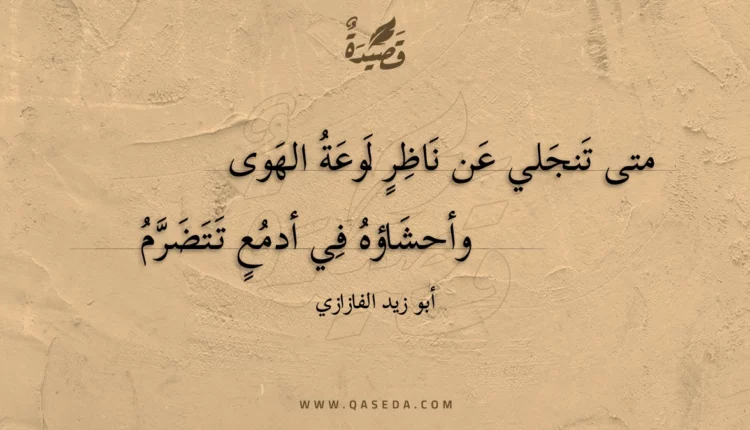 قَصِيدَةٌ
متى تَنجَلي عَن نَاظِرٍ لَوعَةُ الهَوى
وأحشَاؤهُ فِي أدمُعٍ تَتَضَرَّمُ
أبو زيد الفازازي
WWW.QASEDA.COM